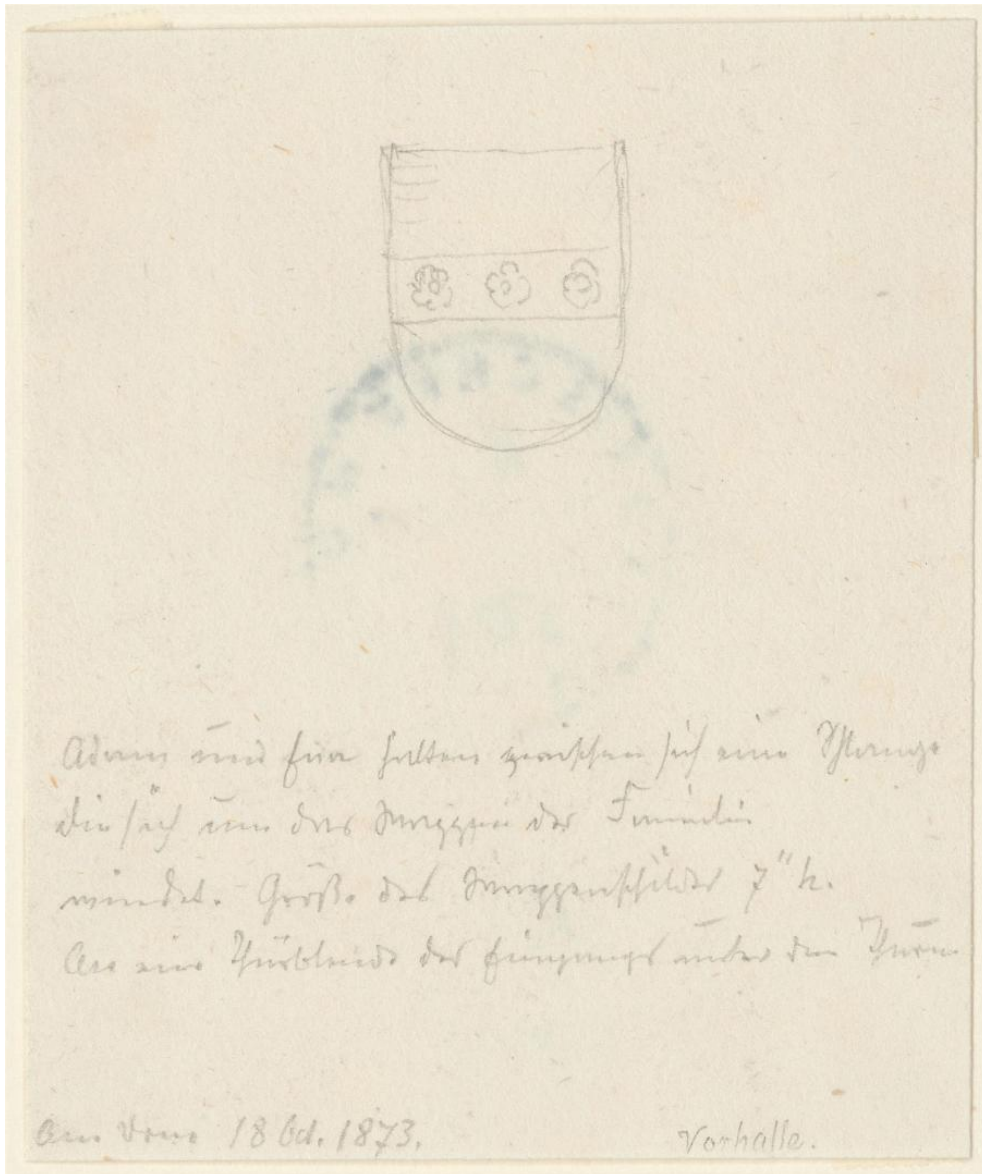 Adam und Eva halten zwischen sich eine Schlange
die sich um das Wappen der Familie
windet. Größe des Wappenschildes 7" h.
An eine Thürblende des Eingangs unter dem Thurm
Am Dom 18 Oct. 1873.
Vorhalle.